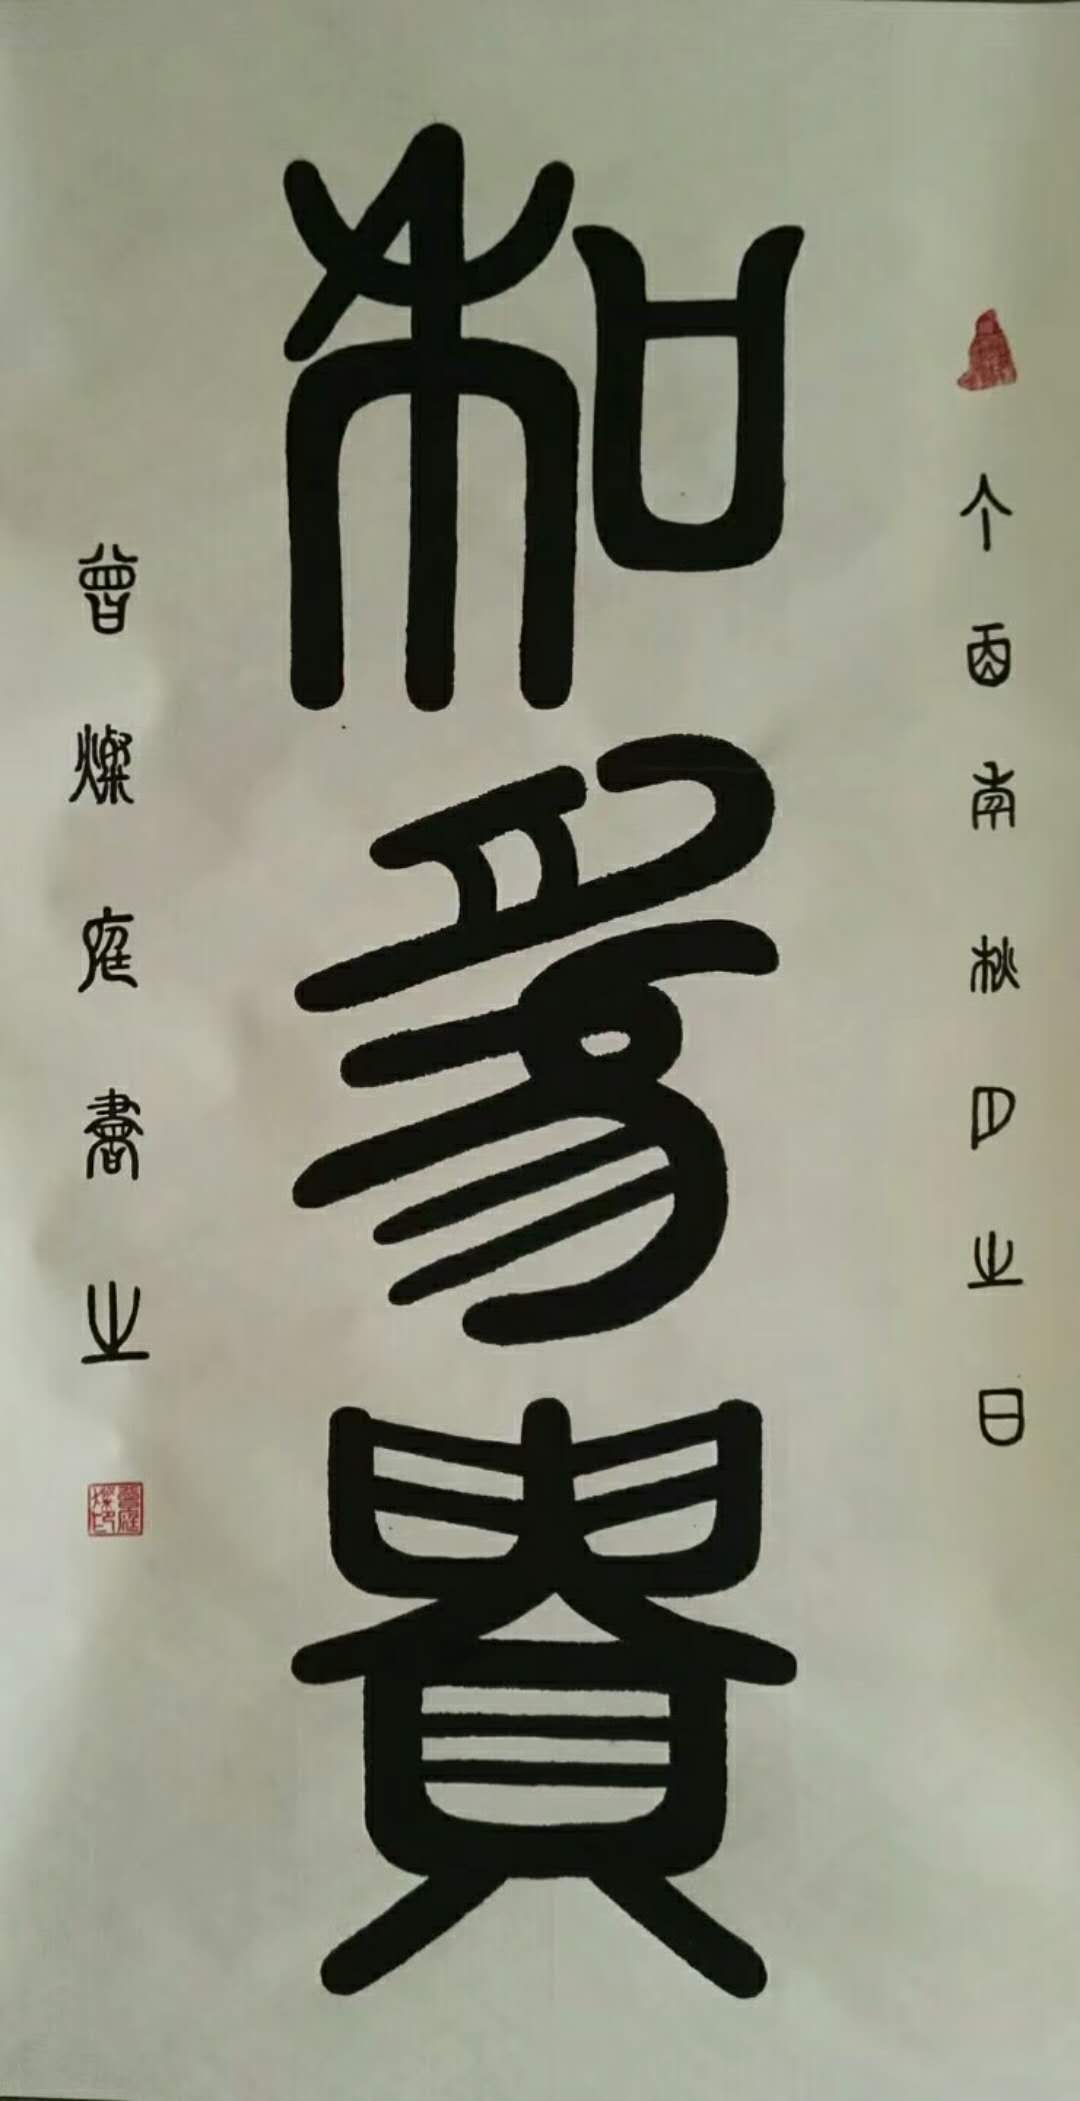 丁酉南秋月之日
和為貴
曾燦庭書之